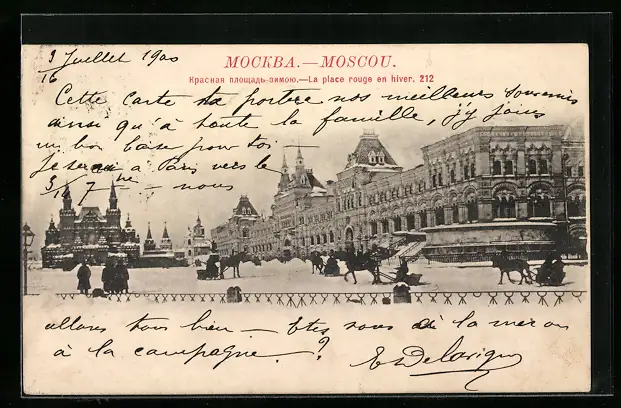 9 Juillet 1900
16
МОСКВА.—MOSCOU.
Красная площадь зимою.—La place rouge en hiver. 212
Cette carte te portera nos meilleurs souvenirs
ainsi qu'à toute la famille, j'y joins
un bon baiser pour toi.
Je serai à Paris vers le
— nous
allons tous bien — Etes vous à la mer ou
à la campagne?
E Delavigne